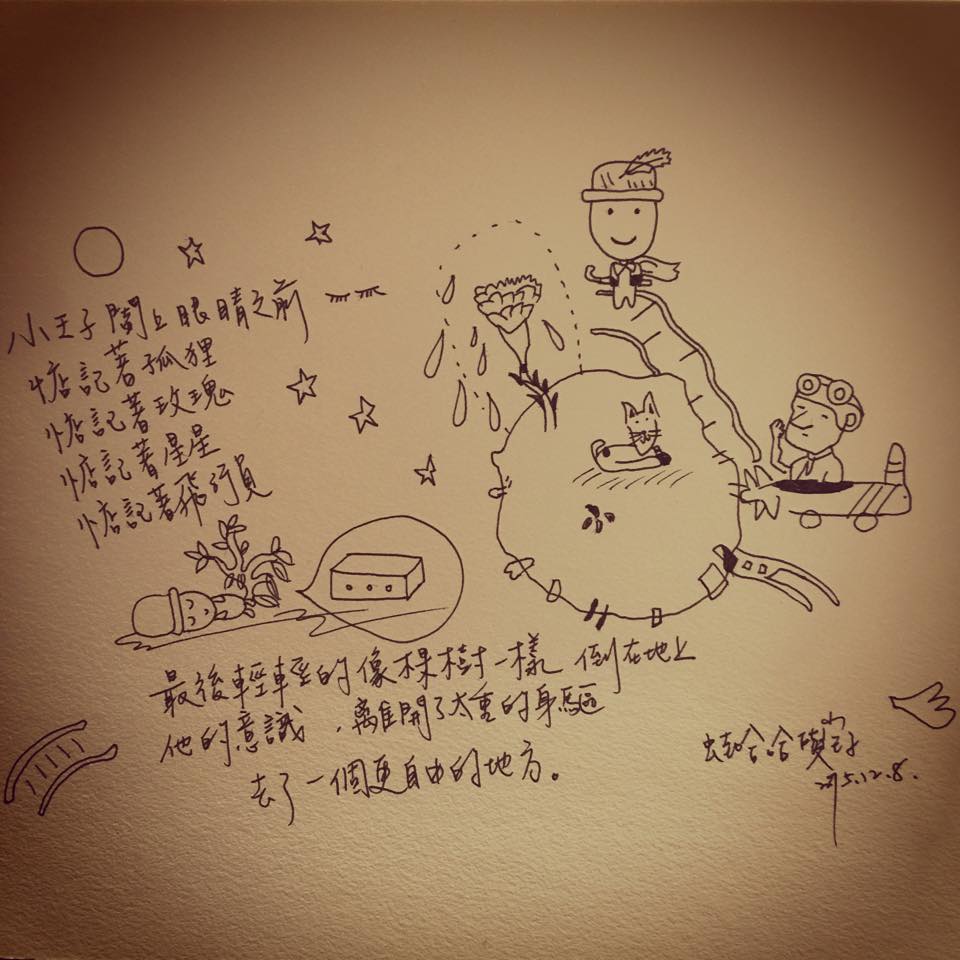 小王子闔上眼睛之前
惦記著孤狸
惦記著玫瑰
惦記著星星
惦記著飛行員
最後輕輕的像棵樹一樣 倒在地上
他的意識，離開了太重的身驅
去了一個更自由的地方。
哈哈
2015.12.8.